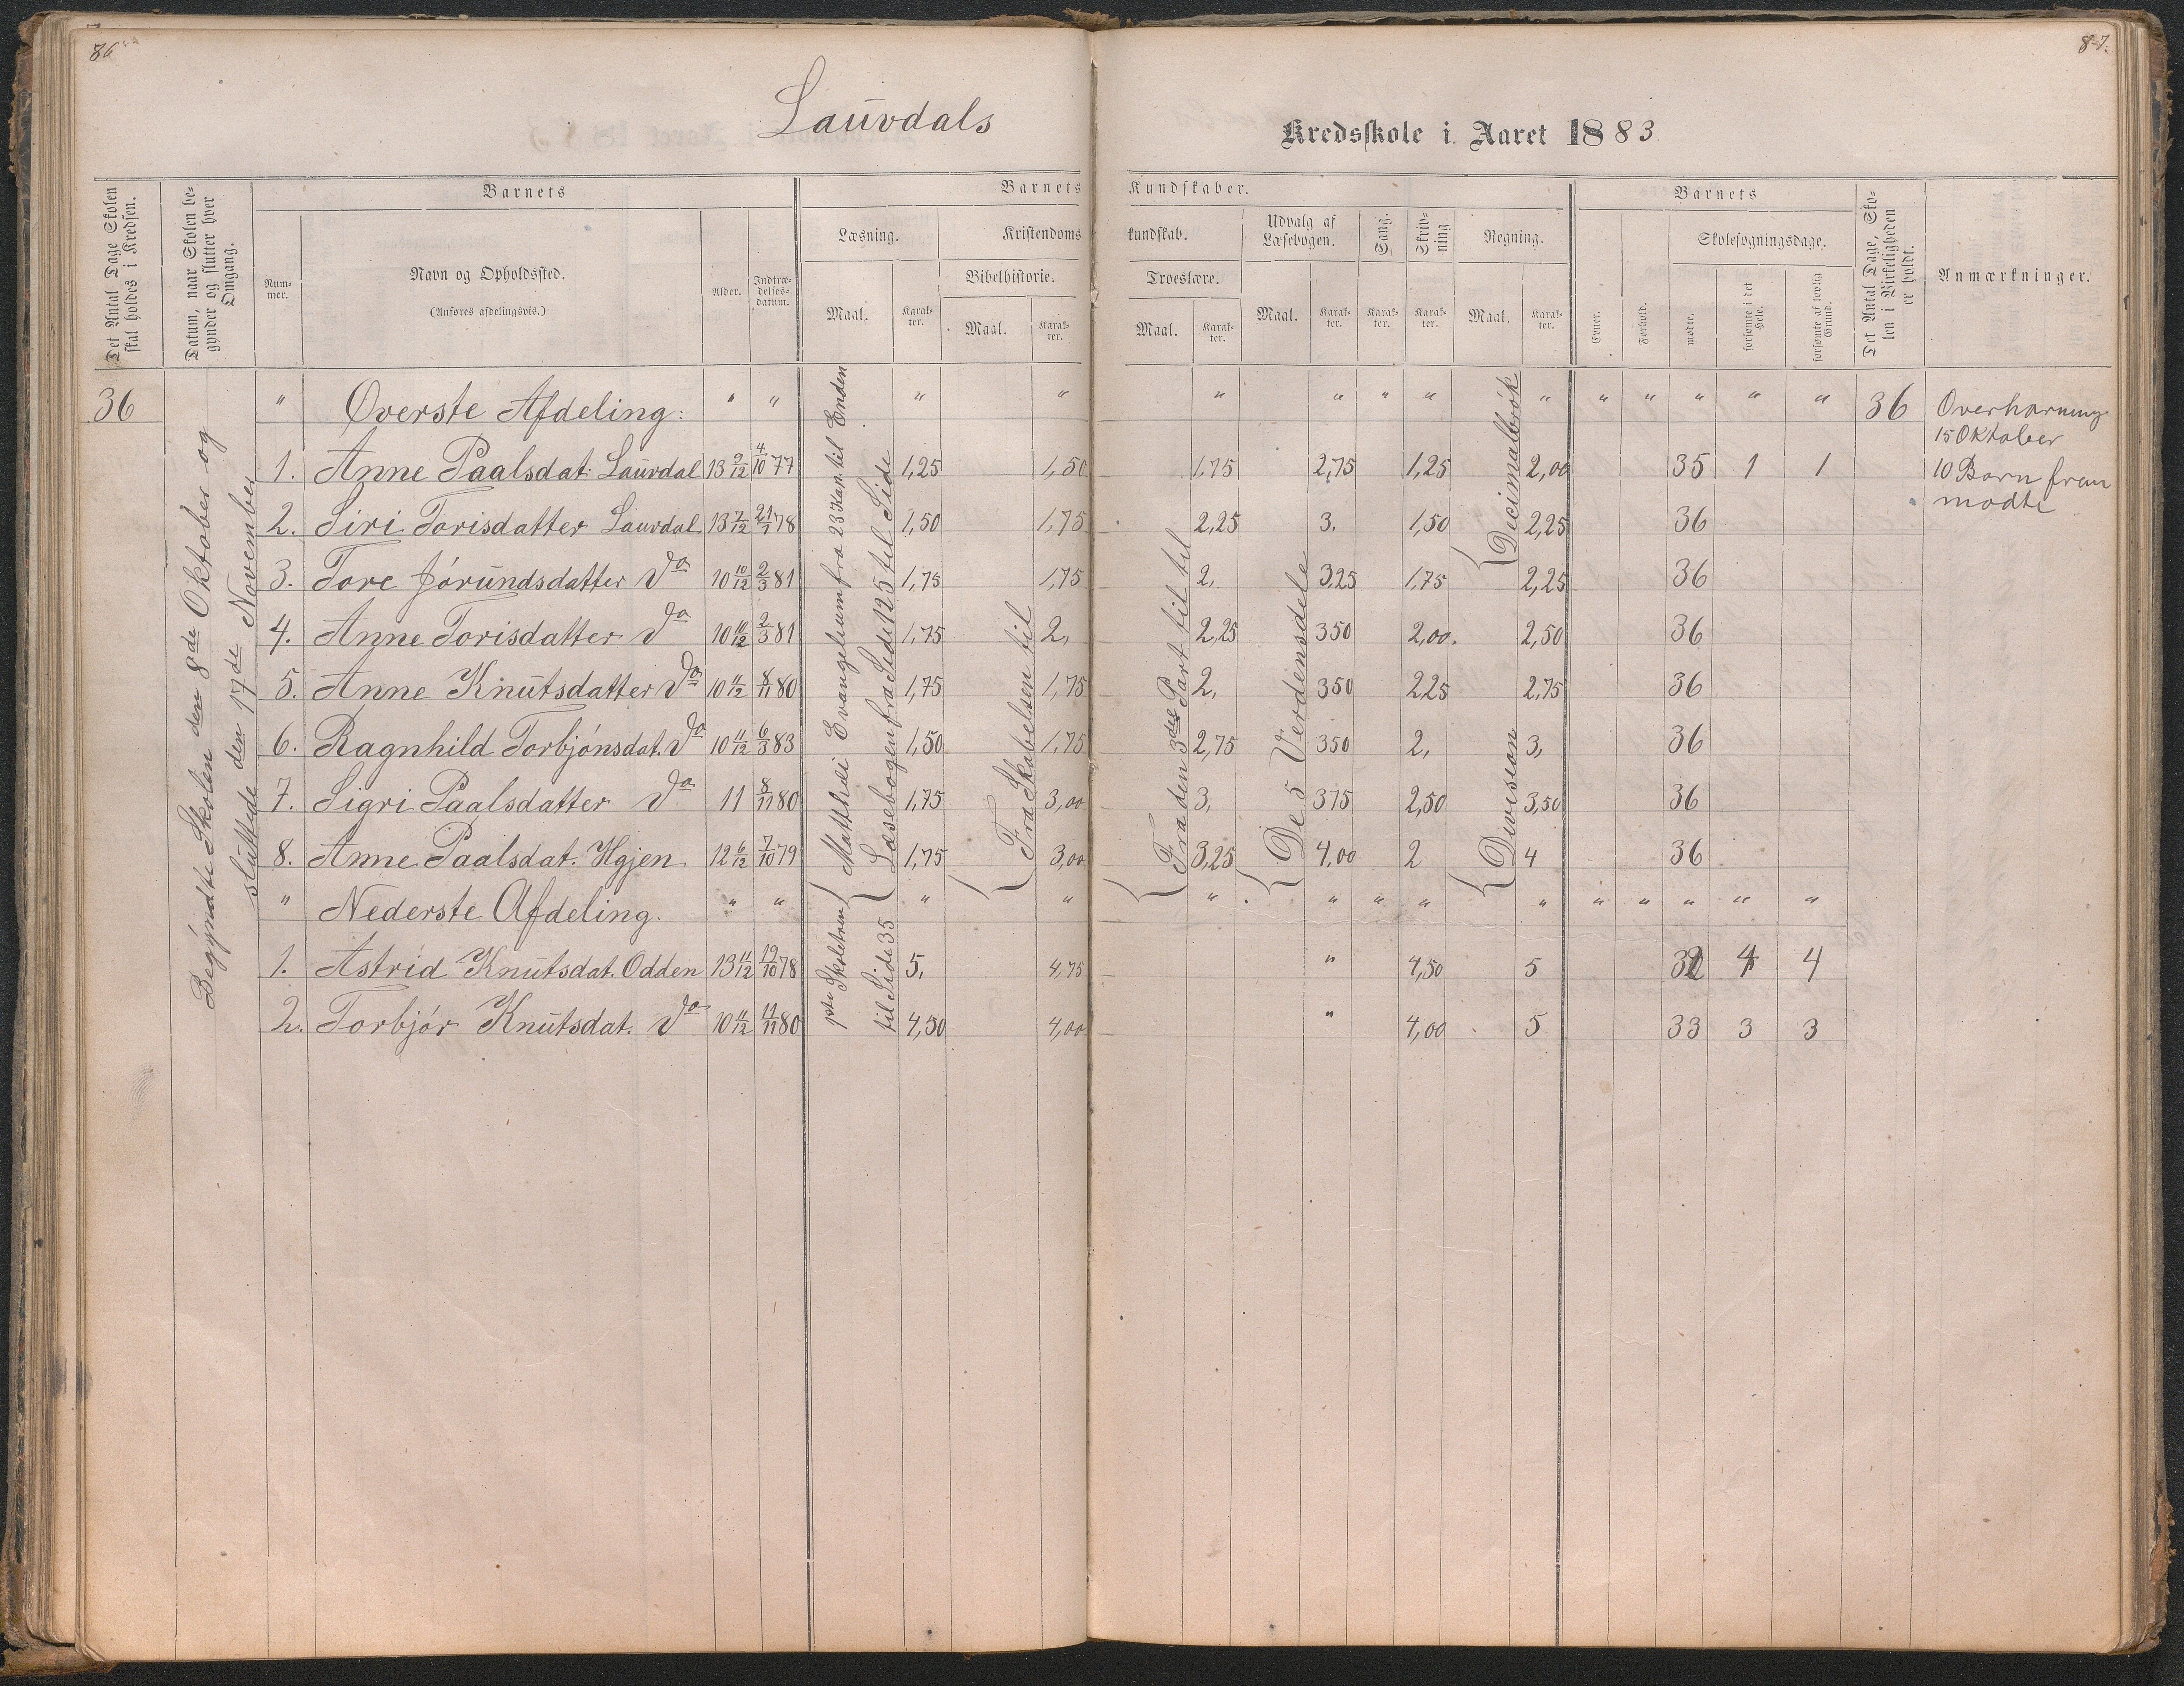 86
87.
Lauvdals Kredsskole i Aaret 1883
Det Antal Dage Skolen skal holdes i Kredsen.
Datum, naar Skolen begynder og slutter hver Omgang.
Barnets
Nummer.
Navn og Opholdssted.
(Anføres afdelingsvis.)
Alder.
Indtrædelsesdatum.
Barnets Kundskaber.
Læsning.
Maal.
Karakter.
Kristendomskundskab.
Bibelhistorie.
Maal.
Karakter.
Troeslære.
Maal.
Karakter.
Udvalg af Læsebogen.
Maal.
Karakter.
Sang.
Karakter.
Skrivning
Karakter.
Regning.
Maal.
Karakter.
Barnets
Evner.
Forhold.
Skolesøgningsdage.
mødte.
forsømte i det Hele.
forsømte af lovlig Grund.
Det Antal Dage, Skolen i Virkeligheden er holdt.
Anmærkninger.
36
Begyndte Skolen den 8de Oktober og
sluttede den 17de November
" Øverste Afdeling: " " " " " " " " " " " " " " 36
1. Anne Paalsdat: Lauvdal 13 9/12 4/10 77 1,25 1,50 1,75 2,75 1,25 2,00 35 1 1
2. Siri Torisdatter Lauvdal 13 7/12 21/1 78 1,50 1,75 2,25 3. 1,50 2,25 36
3. Tore Jørundsdatter Do 10 10/12 2/3 81 1,75 1,75 2, 3,25 1,75 2,25 36
4. Anne Torisdatter Do 10 10/12 2/3 81 1,75 2, 2,25 350 2,00. 2,50 36
5. Anne Knutsdatter Do 10 11/12 8/11 80 1,75 1,75 2, 350 225 2,75 36
6. Ragnhild Torbjønsdat. Do 10 11/12 6/3 83 1,50 1,75 2,75 350 2, 3, 36
7. Sigri Paalsdatter Do 11 8/11 80 1,75 3,00 3, 375 2,50 3,50 36
8. Anne Paalsdat. Hgjen 12 6/12 7/10 79 1,75 3,00 3,25 4,00 2 4 36
" Nederste Afdeling. " " " " " " " " " " " " " "
1. Astrid Knutsdat. Odden 13 11/12 19/10 78 5, 4,75 " 4,50 5 32 4 4
2. Torbjør Knutsdat. Do 10 11/12 11/11 80 4,50 4,00 " 4,00 5 33 3 3
Matthæi Evangelium fra 23 Kap. til Enden
Læsebogen fra Side 125 til Side
1ste Skoletrin
til Side 35
Fra Skabelsen til
Fra den 3die Part til til
De 5 Verdensdele
Dicimalbrøk
Division
Overhørning
15 Oktober
10 Børn frem
mødte